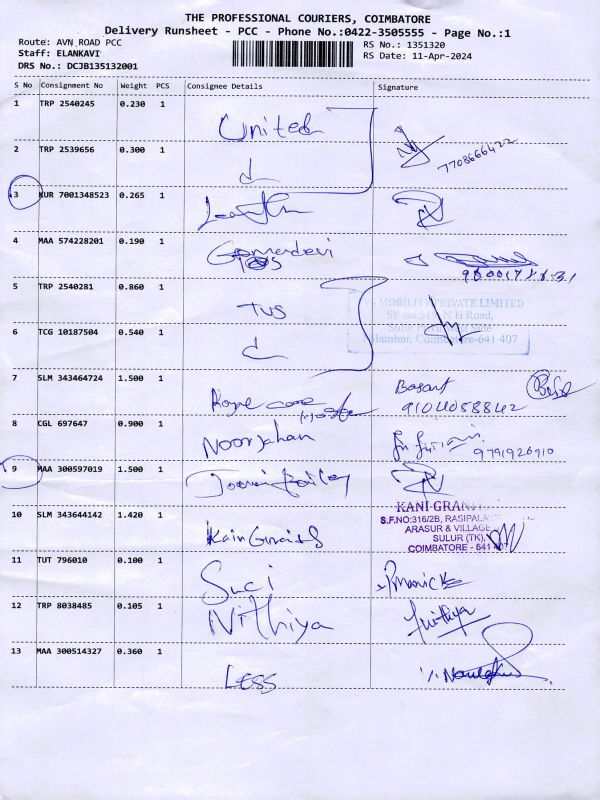 THE PROFESSIONAL COURIERS, COIMBATORE
Delivery Runsheet - PCC - Phone No.:0422-3505555 - Page No.:1
Route: AVN ROAD PCC
Staff: ELANKAVI
DRS No.: DCJB135132001
RS No.: 1351320
RS Date: 11-Apr-2024
S No Consignment No Weight PCS Consignee Details Signature
1 TRP 2540245 0.230 1 United
2 TRP 2539656 0.300 1 7708666422
3 KUR 7001348523 0.265 1
4 MAA 574228201 0.190 1
5 TRP 2540281 0.860 1 TVS
VS MOBILITY PRIVATE LIMITED
SF No.519, N H Road,
6 TCG 10187504 0.540 1
Coimbatore-641 407
7 SLM 343464724 1.500 1
9104058842
8 CGL 697647 0.900 1 Noorjahan 9791926910
9 MAA 300597019 1.500 1
KANI GRANI
S.F.NO:316/2B, RASIPALA
ARASUR & VILLAGE
SULUR (TK),
COIMBATORE - 641 407
10 SLM 343644142 1.420 1
11 TUT 796010 0.100 1 Suci
12 TRP 8038485 0.105 1 Nithiya
13 MAA 300514327 0.360 1 LESS